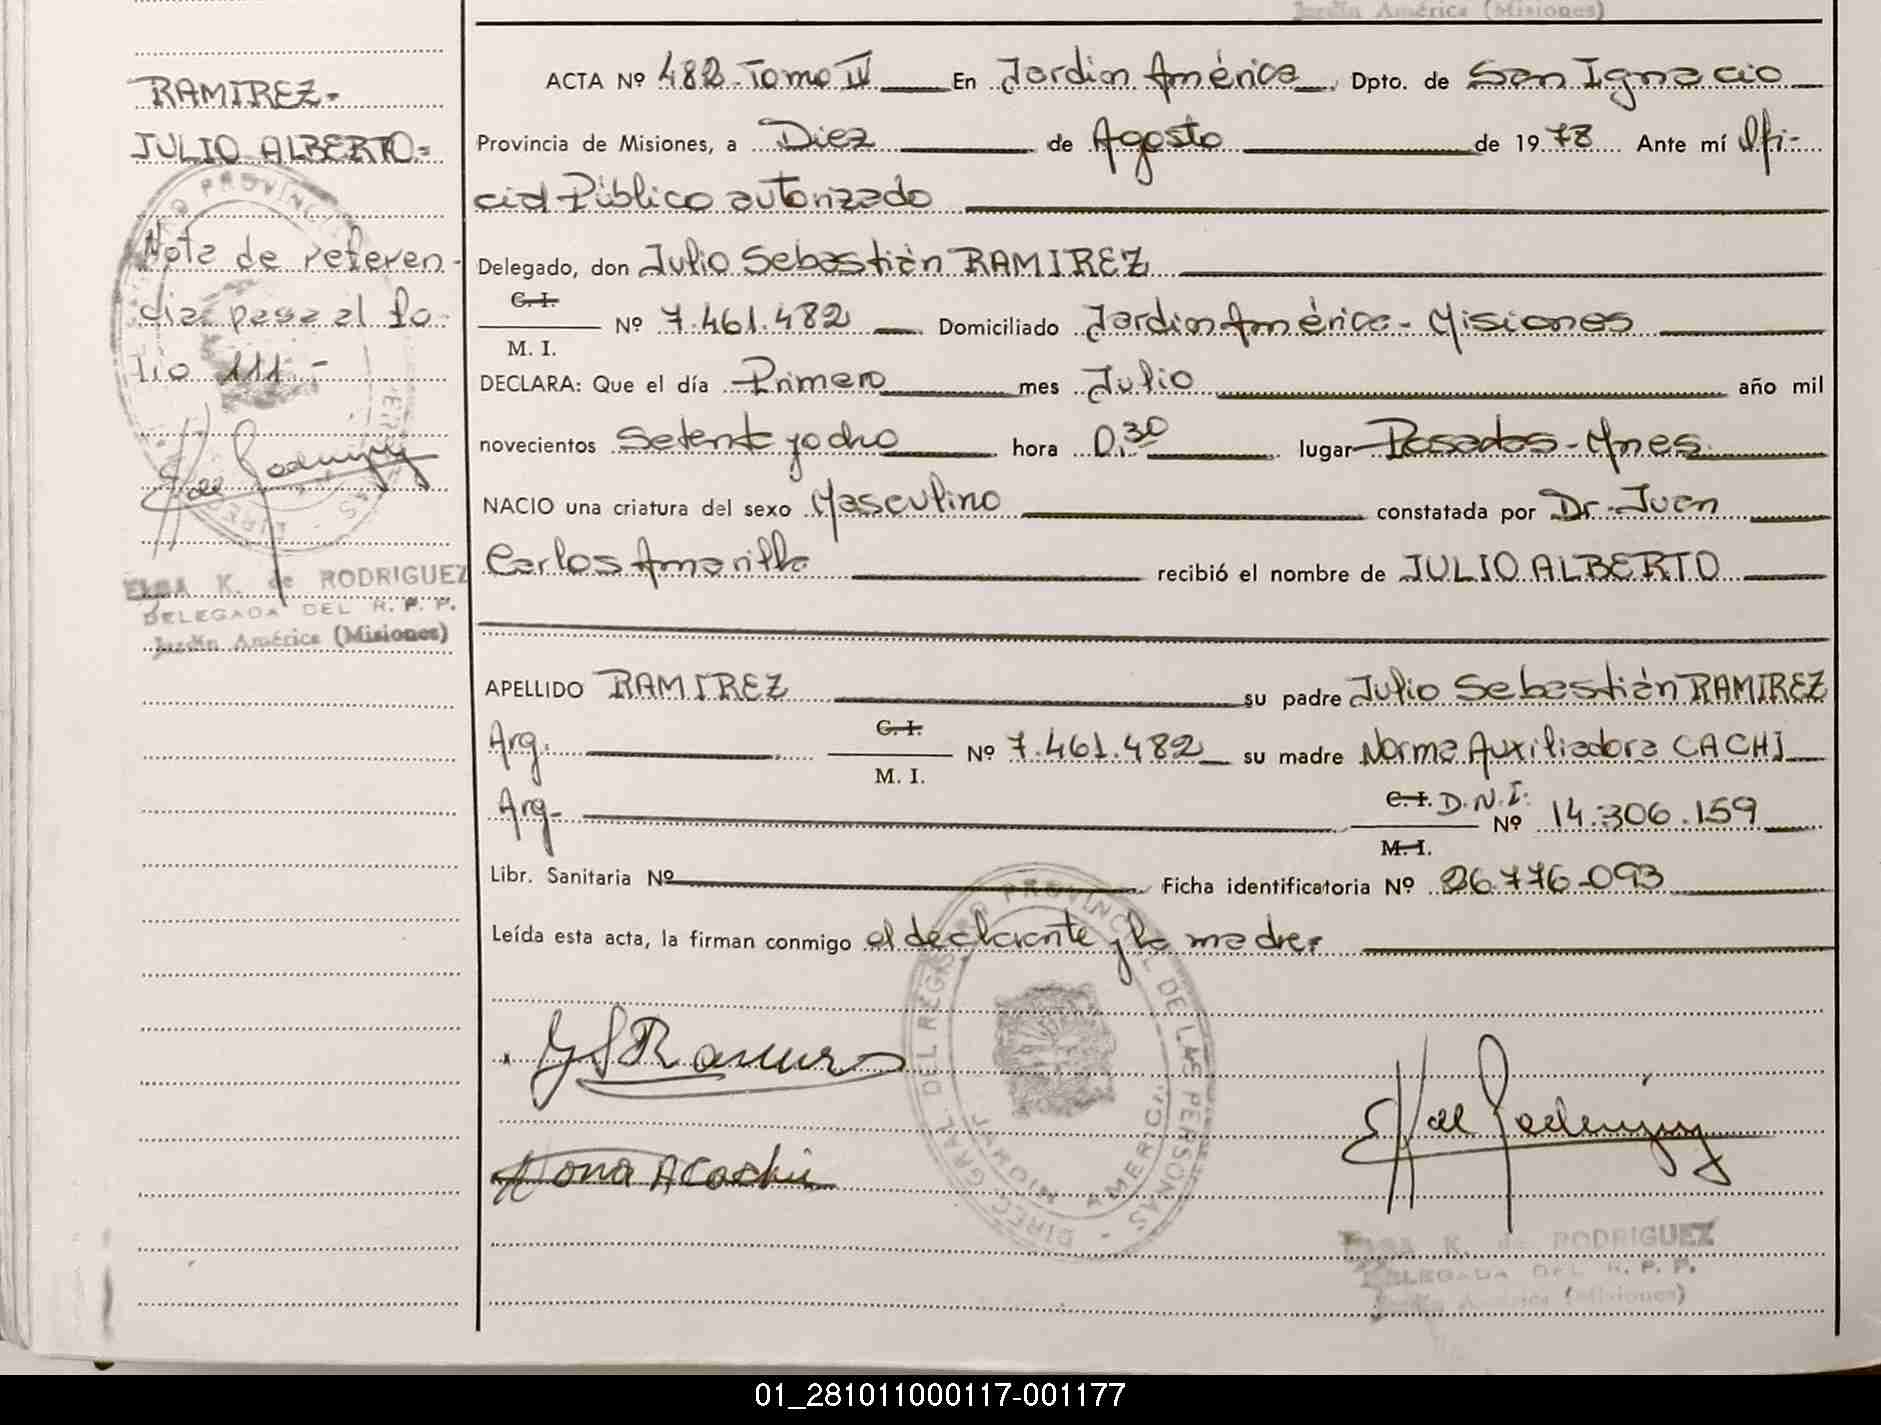 Jardín América (Misiones)
RAMIREZ-
JULIO ALBERTO=
Nota de referen-
cia: pasa al fo-
lio 111.-
ELSA K. de RODRIGUEZ
DELEGADA DEL R. P. P.
Jardín América (Misiones)
ACTA Nº 482-Tomo IV En Jardin América Dpto. de San Ignacio
Provincia de Misiones, a Diez de Agosto de 1978 Ante mí Ofi-
cial Público autorizado
Delegado, don Julio Sebastián RAMIREZ
C. I.
M. I. Nº 7.461.482 Domiciliado Jardin América- Misiones
DECLARA: Que el día Primero mes Julio año mil
novecientos Setenta y ocho hora 0,30 lugar Posadas-Mnes.
NACIO una criatura del sexo Masculino constatada por Dr. Juan
Carlos Amarilla recibió el nombre de JULIO ALBERTO
APELLIDO RAMIREZ su padre Julio Sebastián RAMIREZ
Arg. C. I.
M. I. Nº 7.461.482 su madre Norma Auxiliadora CACHI
Arg- C. I. D.N.I.
M. I. Nº 14.306.159
Libr. Sanitaria Nº Ficha identificatoria Nº 26.776.093
Leída esta acta, la firman conmigo el declarante y la madre.
DIREC. GRAL. DEL REGISTRO PROVINCIAL DE LAS PERSONAS
JARDIN AMERICA
ELSA K. de RODRIGUEZ
DELEGADA DEL R. P. P.
Jardín América (Misiones)
01_281011000117-001177